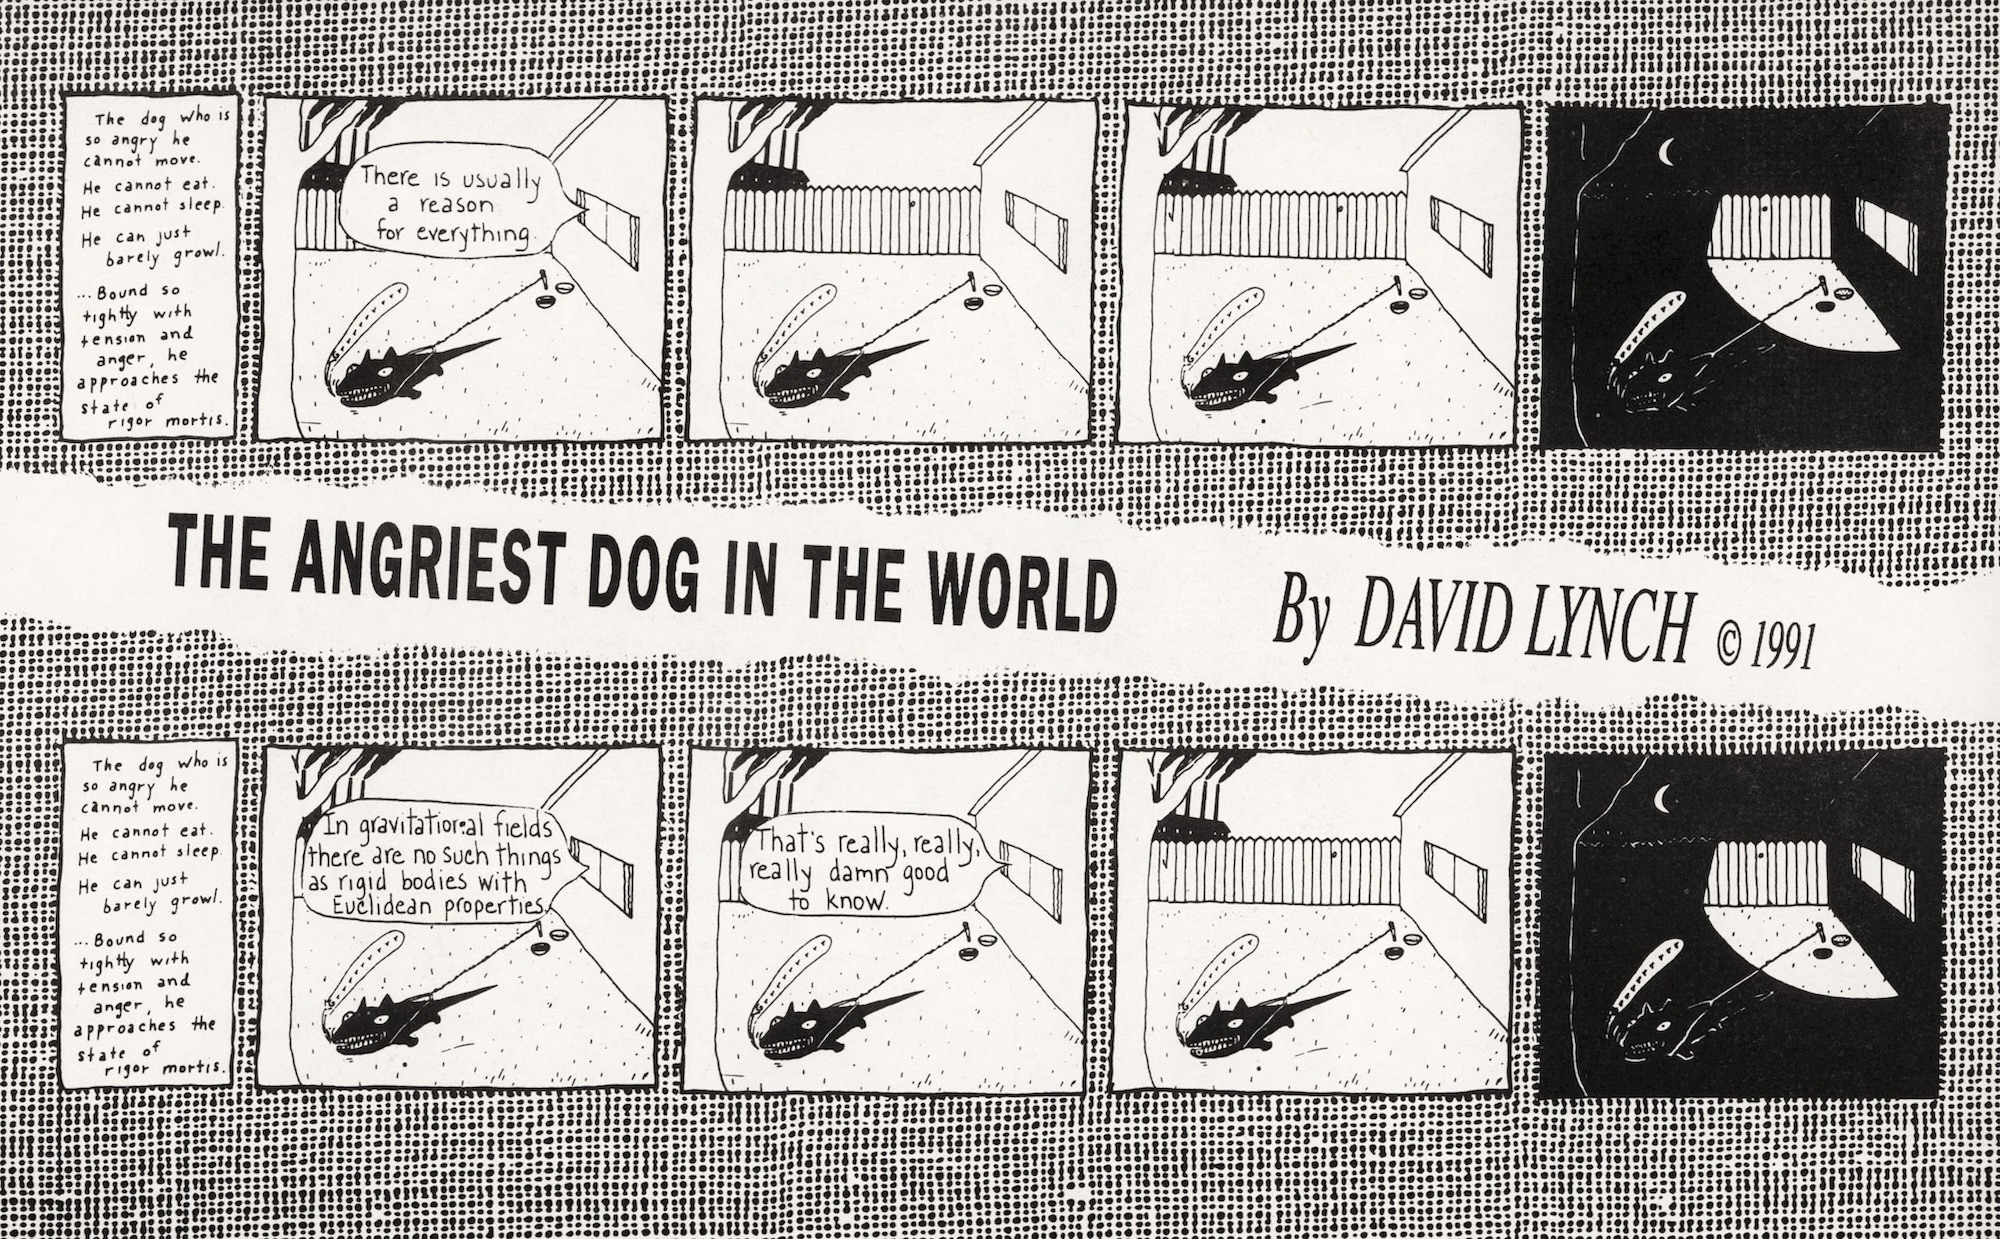 The dog who is
so angry he
cannot move.
He cannot eat.
He cannot sleep.
He can just
barely growl.
...Bound so
tightly with
tension and
anger, he
approaches the
state of
rigor mortis.
There is usually
a reason
for everything.
THE ANGRIEST DOG IN THE WORLD By DAVID LYNCH © 1991
The dog who is
so angry he
cannot move.
He cannot eat.
He cannot sleep.
He can just
barely growl.
...Bound so
tightly with
tension and
anger, he
approaches the
state of
rigor mortis.
In gravitational fields
there are no such things
as rigid bodies with
Euclidean properties.
That's really, really,
really damn good
to know.